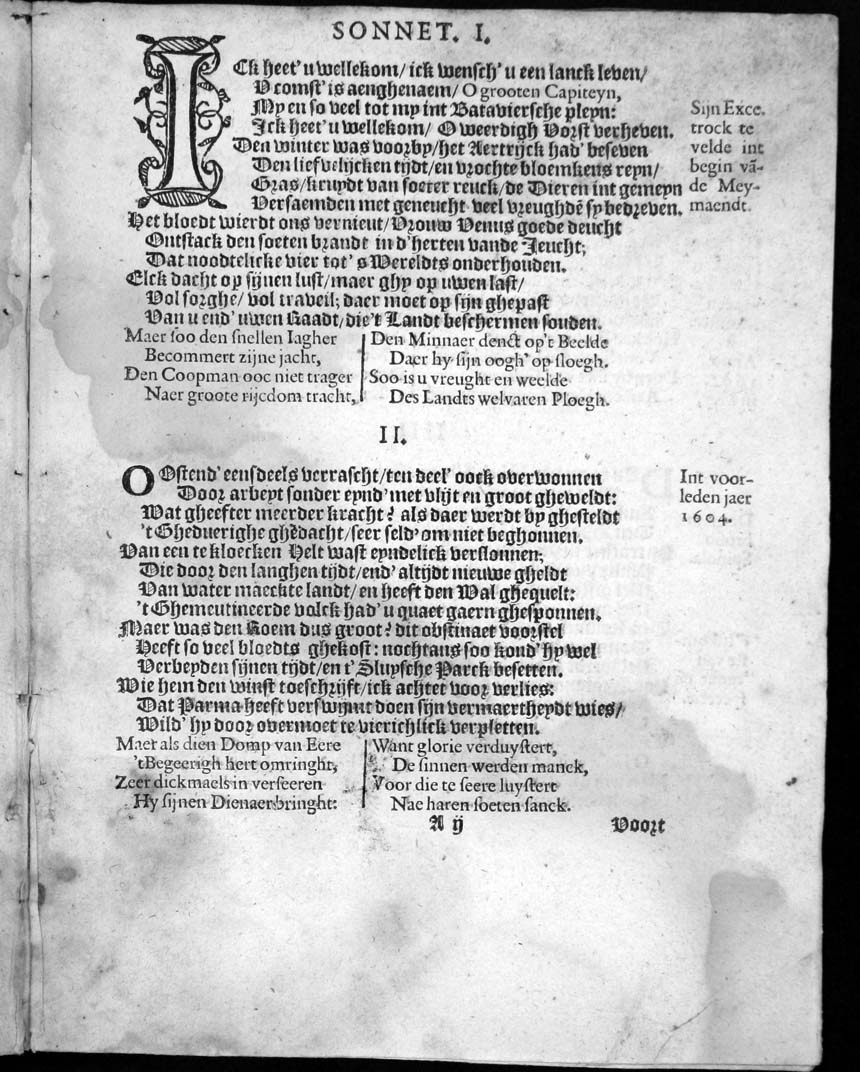 SONNET. I.
ICk heet' u wellekom/ ick wensch' u een lanck leven/
V comst' is aenghenaem/ O grooten Capiteyn,
My en so veel tot my int Bataviersche pleyn:
Ick heet' u wellekom/ O weerdigh Vorst verheven.
Den winter was voorby/ het Aertrijck had' beseven
Den liefvelijcken tijdt/ en vrochte bloemkens reyn/
Gras/ kruydt van soeter reuck/ de Dieren int gemeyn
Versaemden met geneucht veel vreughdē sy bedreven.
Het bloedt wierdt ons vernieut/ Vrouw Venus goede deucht
Ontstack den soeten brandt in d'herten vande Jeucht;
Dat noodtelicke vier tot' s Wereldts onderhouden.
Elck dacht op sijnen lust/ maer ghy op uwen last/
Vol sorghe/ vol traveil; daer moet op sijn ghepast
Van u end' uwen Raadt/ die't Landt beschermen souden.
Sijn Exce.
trock te
velde int
begin vā-
de Mey-
maendt.
Maer soo den snellen Iagher
Becommert zijne jacht,
Den Coopman ooc niet trager
Naer groote rijcdom tracht,
Den Minnaer denct op't Beelde
Daer hy sijn oogh' op sloegh.
Soo is u vreught en weelde
Des Landts welvaren Ploegh.
II.
OOstend' eensdeels verrascht/ ten deel' oock overwonnen
Door arbeyt sonder eynd' met vlijt en groot gheweldt:
Wat gheefter meerder kracht? als daer werdt by ghesteldt
't Gheduerighe ghēdacht/ seer seld' om niet beghonnen.
Van een te kloecken Helt wast eyndelick verslonnen;
Die door den langhen tijdt/ end' altijdt nieuwe gheldt
Van water maeckte landt/ en heeft den Wal ghequelt:
't Ghemeutineerde volck had' u quaet gaern ghesponnen.
Maer was den Roem dus groot? dit obstinaet voorstel
Heeft so veel bloedts ghekost: nochtans soo kond' hy wel
Verbeyden sijnen tijdt/ en t'Sluysche Parck besetten.
Wie hem den winst toeschrijft/ ick achtet voor verlies:
Dat Parma heeft verswijmt doen sijn vermaertheydt wies/
Wild' hy door overmoet te vierichlick verpletten.
Int voor-
leden jaer
1604.
Maer als dien Domp van Eere
't Begeerigh hert omringht,
Zeer dickmaels in verseeren
Hy sijnen Dienaer bringht:
Want glorie verduystert,
De sinnen werden manck,
Voor die te seere luystert
Nae haren soeten sanck.
A ij
Voort